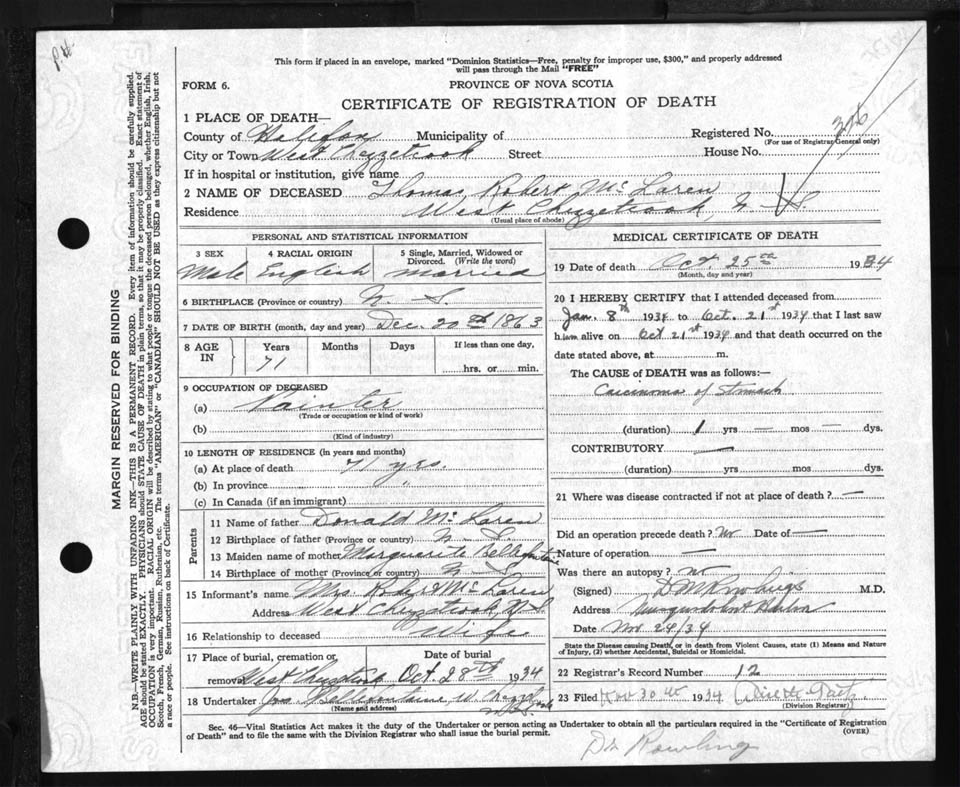 P.H.
This form if placed in an envelope, marked "Dominion Statistics—Free, penalty for improper use, $300," and properly addressed
will pass through the Mail "FREE"
FORM 6.
PROVINCE OF NOVA SCOTIA
CERTIFICATE OF REGISTRATION OF DEATH
1 PLACE OF DEATH—
County of Halifax Municipality of Registered No. 326
(For use of Registrar General only)
City or Town West Chezzetcook Street House No.
If in hospital or institution, give name
2 NAME OF DECEASED Thomas Robert McLaren
Residence West Chezzetcook, N. S.
(Usual place of abode)
PERSONAL AND STATISTICAL INFORMATION
3 SEX 4 RACIAL ORIGIN 5 Single, Married, Widowed or
Divorced. (Write the word)
Male English married
6 BIRTHPLACE (Province or country) N. S.
7 DATE OF BIRTH (month, day and year) Dec. 20th 1863
8 AGE IN Years Months Days If less than one day,
71 hrs. or min.
9 OCCUPATION OF DECEASED
(a) Painter
(Trade or occupation or kind of work)
(b)
(Kind of industry)
10 LENGTH OF RESIDENCE (in years and months)
(a) At place of death 71 yrs.
(b) In province "
(c) In Canada (if an immigrant)
Parents
11 Name of father Donald McLaren
12 Birthplace of father (Province or country) N. S.
13 Maiden name of mother Marguerite Bellefontaine
14 Birthplace of mother (Province or country) N. S.
15 Informant's name Mrs Robert McLaren
Address West Chezzetcook, N.S.
16 Relationship to deceased Wife
17 Place of burial, cremation or Date of burial
removal West Chezzetcook Oct. 28th 1934
18 Undertaker Jos Bellefontaine W. Chezzetcook
N.S.
(Name and address)
MEDICAL CERTIFICATE OF DEATH
19 Date of death Oct. 25th 1934
(Month, day and year)
20 I HEREBY CERTIFY that I attended deceased from
Jan. 8th 1934 to Oct. 21st 1934 that I last saw
him alive on Oct 21st 1934 and that death occurred on the
date stated above, at m.
The CAUSE of DEATH was as follows:—
Carcinoma of Stomach
(duration) 1 yrs — mos — dys.
CONTRIBUTORY —
(duration) yrs mos dys.
21 Where was disease contracted if not at place of death? —
Did an operation precede death? No Date of —
Nature of operation —
Was there an autopsy? no
(Signed) M.D.
Address
Date Nov 24/34
State the Disease causing Death, or in death from Violent Causes, state (1) Means and Nature
of Injury, (2) whether Accidental, Suicidal or Homicidal.
22 Registrar's Record Number 12
23 Filed Nov 30th 1934
(Division Registrar)
Sec. 46—Vital Statistics Act makes it the duty of the Undertaker or person acting as Undertaker to obtain all the particulars required in the "Certificate of Registration
of Death" and to file the same with the Division Registrar who shall issue the burial permit.
(OVER)
Dr Rowling
MARGIN RESERVED FOR BINDING
N.B.—WRITE PLAINLY WITH UNFADING INK—THIS IS A PERMANENT RECORD. Every item of information should be carefully supplied.
AGE should be stated EXACTLY. PHYSICIANS should STATE CAUSE OF DEATH in plain terms, so that it may be properly classified. Exact statement of
OCCUPATION is very important. RACIAL ORIGIN will be described by stating to what people or tongue the deceased person belonged, whether English, Irish,
Scotch, French, German, Russian, Ruthenian, etc. The terms "AMERICAN" or "CANADIAN" SHOULD NOT BE USED as they express citizenship but not
a race or people. See instructions on back of Certificate.